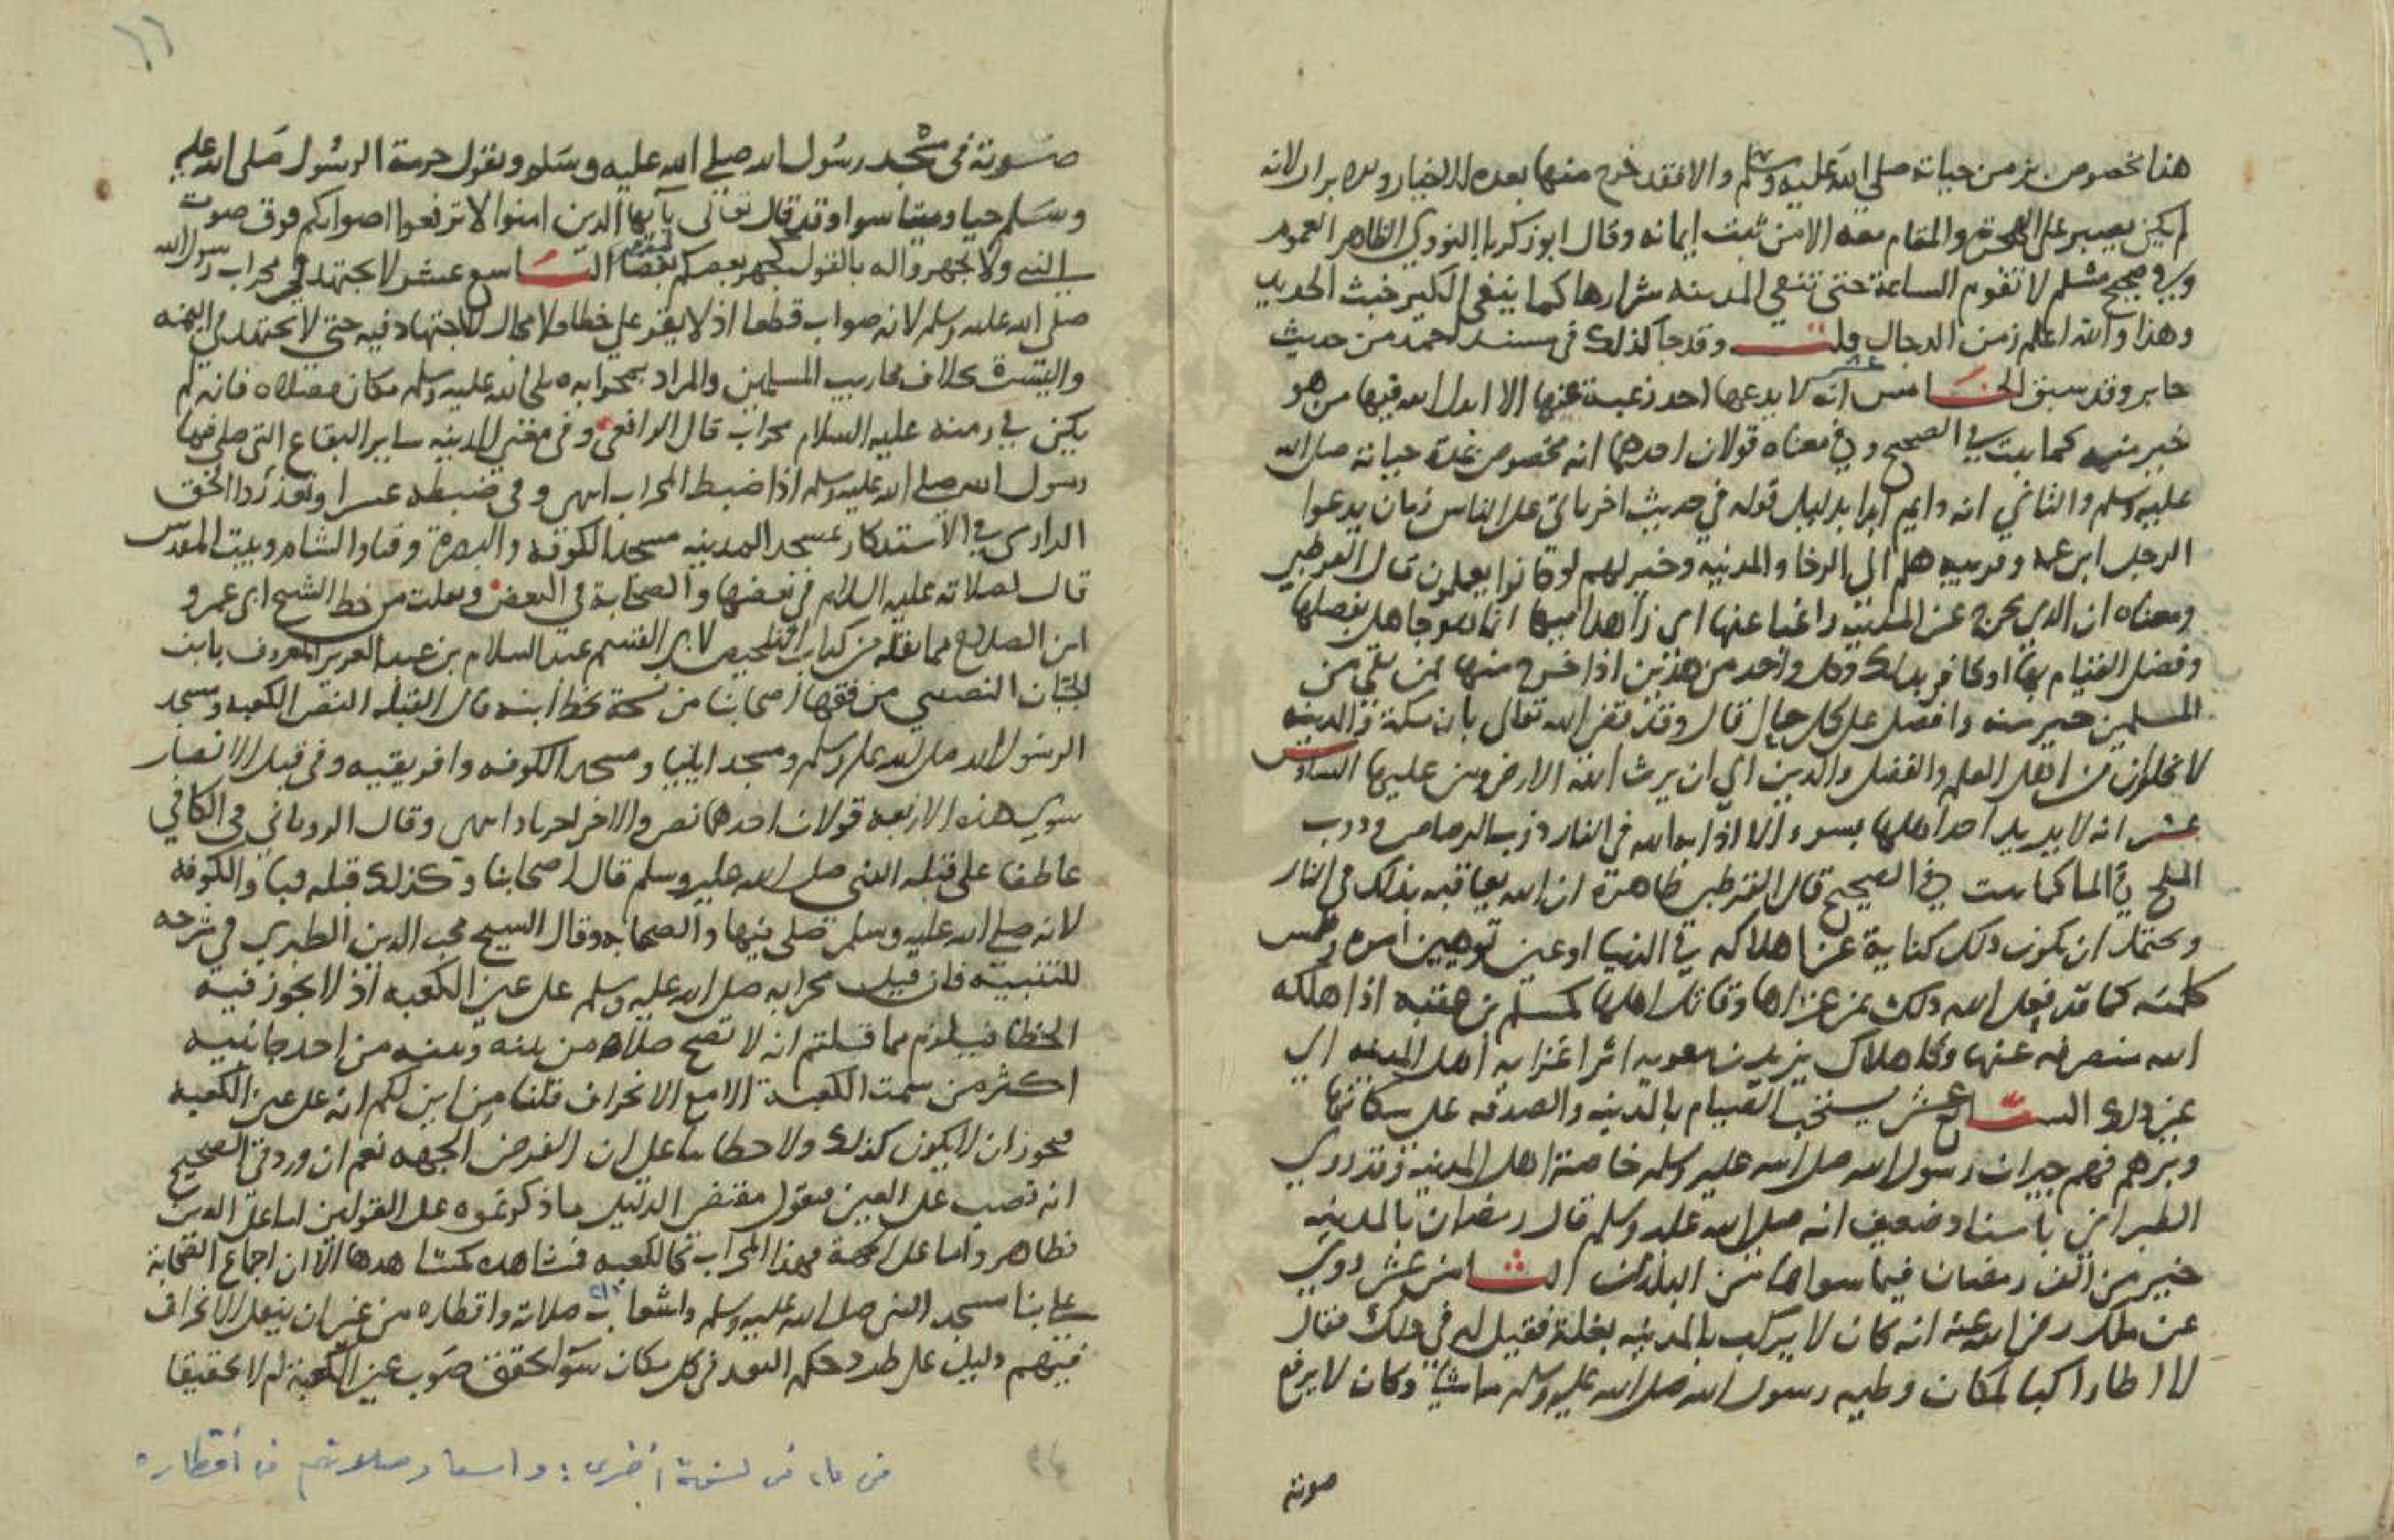 هذا مخصوص بزمن حياته صلى الله عليه وسلم والا فقد خرج منها بعده الاخيار والابرار لانه
لم يكن يصبر على الهجرة والمقام معه الا من ثبت ايمانه وقال ابو زكريا النووي الظاهر العموم
وفي صحيح مسلم لا تقوم الساعة حتى تنفي المدينه شرارها كما ينفي الكير خبث الحديد
وهذا والله اعلم زمن الدجال قلت وقد جا كذلك في مسند احمد من حديث
جابر وقد سبق الخامس عشر انه لا يدعها احد رغبة عنها الا ابدل الله فيها من هو
خير منه كما ثبت في الصحيح وفي معناه قولان احدهما انه مخصوص بمدة حياته صلى الله
عليه وسلم والثاني انه دايم ابدا بدليل قوله في حديث اخر ياتي على الناس زمان يدعوا
الرجل ابن عمه وقريبه هلم الى الرخا والمدينه خير لهم لو كانوا يعلمون قال القرطبي
ومعناه ان الذي يخرج عن المدينه راغبا عنها اي زاهدا فيها انما هو جاهل بفضلها
وفضل القيام بها او كافر بذلك وكل واحد من هذين اذا خرج منها فمن بقي من
المسلمين خير منه وافضل على كل حال قال وقد قضى الله تعالى بان مكة والمدينه
لا تخلوان من اهل العلم والفضل والدين الى ان يرث الله الارض ومن عليها السادس
عشر انه لا يريد احد اهلها بسوء الا اذابه الله في النار ذوب الرصاص وذوب
الملح في الما كما ثبت في الصحيح قال القرطبي ظاهره ان الله يعاقبه بذلك في النار
ويحتمل ان يكون ذلك كناية عن اهلاكه في الدنيا او عن توهين امره وطمس
كلمته كما قد فعل الله ذلك بمن غزاها وقاتل اهلها كمسلم بن عقبه اذ اهلكه
الله منصرفه عنها وكاهلاك يزيد بن معويه اثر اغزايه اهل المدينه الى
غير ذلك السابع عشر يستحب الصيام بالمدينه والصدقه على سكانها
وبرهم فهم جيران رسول الله صلى الله عليه وسلم خاصة اهل المدينه وقد روى
الطبراني باسناد ضعيف انه صلى الله عليه وسلم قال رمضان بالمدينه
خير من الف رمضان فيما سواها من البلدان الثامن عشر روي
عن ملك رضي الله عنه انه كان لا يركب بالمدينه بغلة فقيل له في ذلك فقال
لا اطا راكبا لمكان وطيه رسول الله صلى الله عليه وسلم ماشيا وكان لا يرفع
صوته
صوته في مسجد رسول الله صلى الله عليه وسلم ويقول حرمة الرسول صلى الله عليه
وسلم حيا وميتا سوا وقد قال تعالى يا ايها الذين امنوا لا ترفعوا اصواتكم فوق صوت
النبي ولا تجهروا له بالقول كجهر بعضكم لبعض التاسع عشر لا يجتهد في محراب رسول الله
صلى الله عليه وسلم لانه صواب قطعا اذ لا يقر على خطا فلا مجال للاجتهاد فيه حتى لا يجتهد في اليمنه
واليسرة بخلاف محاريب المسلمين والمراد بمحرابه صلى الله عليه وسلم مكان مصلاه فانه لم
يكن في زمنه عليه السلام محراب قال الرافعي وفي معنى المدينه ساير البقاع التي صلى فيها
رسول الله صلى الله عليه وسلم اذا ضبط المحراب انتهى وفي ضبطه عسر او تعذر والحق
الدارمي في الاستذكار بمسجد المدينه مسجد الكوفه والبصرة وقبا والشام وبيت المقدس
قال لصلاته عليه السلام في بعضها والصحابة في البعض ونقلت من خط الشيخ ابي عمرو
ابن الصلاح مما نقله من كتاب التلخيص لابي القسم عبد السلام بن عبد العزيز المعروف بابن
من فقها اصحابنا من نسخة بخط ابنه قال القبله النص الكعبه ومسجد
الرسول صلى الله عليه وسلم ومسجد ايليا ومسجد الكوفه وافريقيه وفي قبل الانصار
سوى هذه الاربعه قولان احدهما نص والاخر اجتهاد انتهى وقال الروياني في الكافي
عاطفا على قبله النبي صلى الله عليه وسلم قال اصحابنا وكذلك قبله قبا والكوفة
لانه صلى الله عليه وسلم صلى فيها والصحابه وقال الشيخ محب الدين الطبري في شرحه
للتنبيه فان قيل محرابه صلى الله عليه وسلم على عين الكعبه اذ لا يجوز فيه
الخطا فيلزم مما قلتم انه لا تصح صلاة من بينه وبينه من احد جانبيه
اكثر من سمت الكعبة الا مع الانحراف قلنا من اين لكم انه على عين الكعبه
فيجوز ان لا يكون كذلك ولا خطا بنا على ان الفرض الجهه نعم ان ورد في الصحيح
انه نصب على العين فنقول مقتضى الدليل ما ذكرتموه على القولين اما على العين
فظاهر واما على الجهة فهذا المحراب كالكعبه فمشاهده كمشاهدها الا ان اجماع الصحابة
على بنا مسجد النبي صلى الله عليه وسلم صلاته واقطاره من غير ان ينقل الانحراف
فيهم دليل على طرد حكم البعد في كل مكان سوا تحقق صوب عين الكعبة ام لا تحقيقا
في نسخة اخرى : صلاتهم في أقطاره